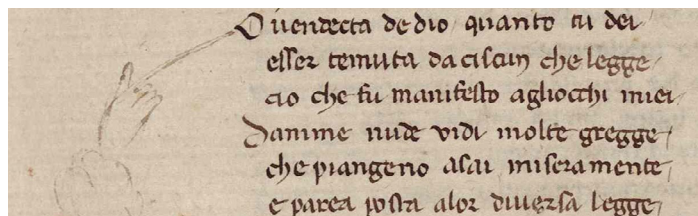 O uendecta de dio quanto tu dei
esser temuta da ciscun che legge
cio che fu manifesto agliocchi miei
Danime nude vidi molte gregge
che piangeno asai miseramente
e parea posta alor diuersa legge